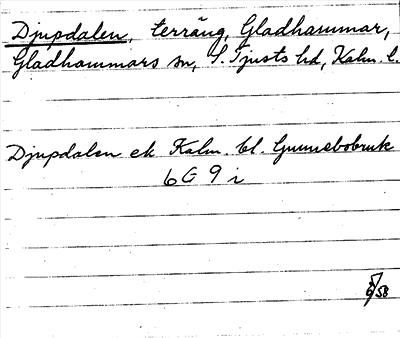 Djupdalen, terräng, Gladhammar,
Gladhammars sn, S. Tjusts hd, Kalm. l.
Djupdalen ek Kalm. bl. Gunnebobruk
6G 9i
58